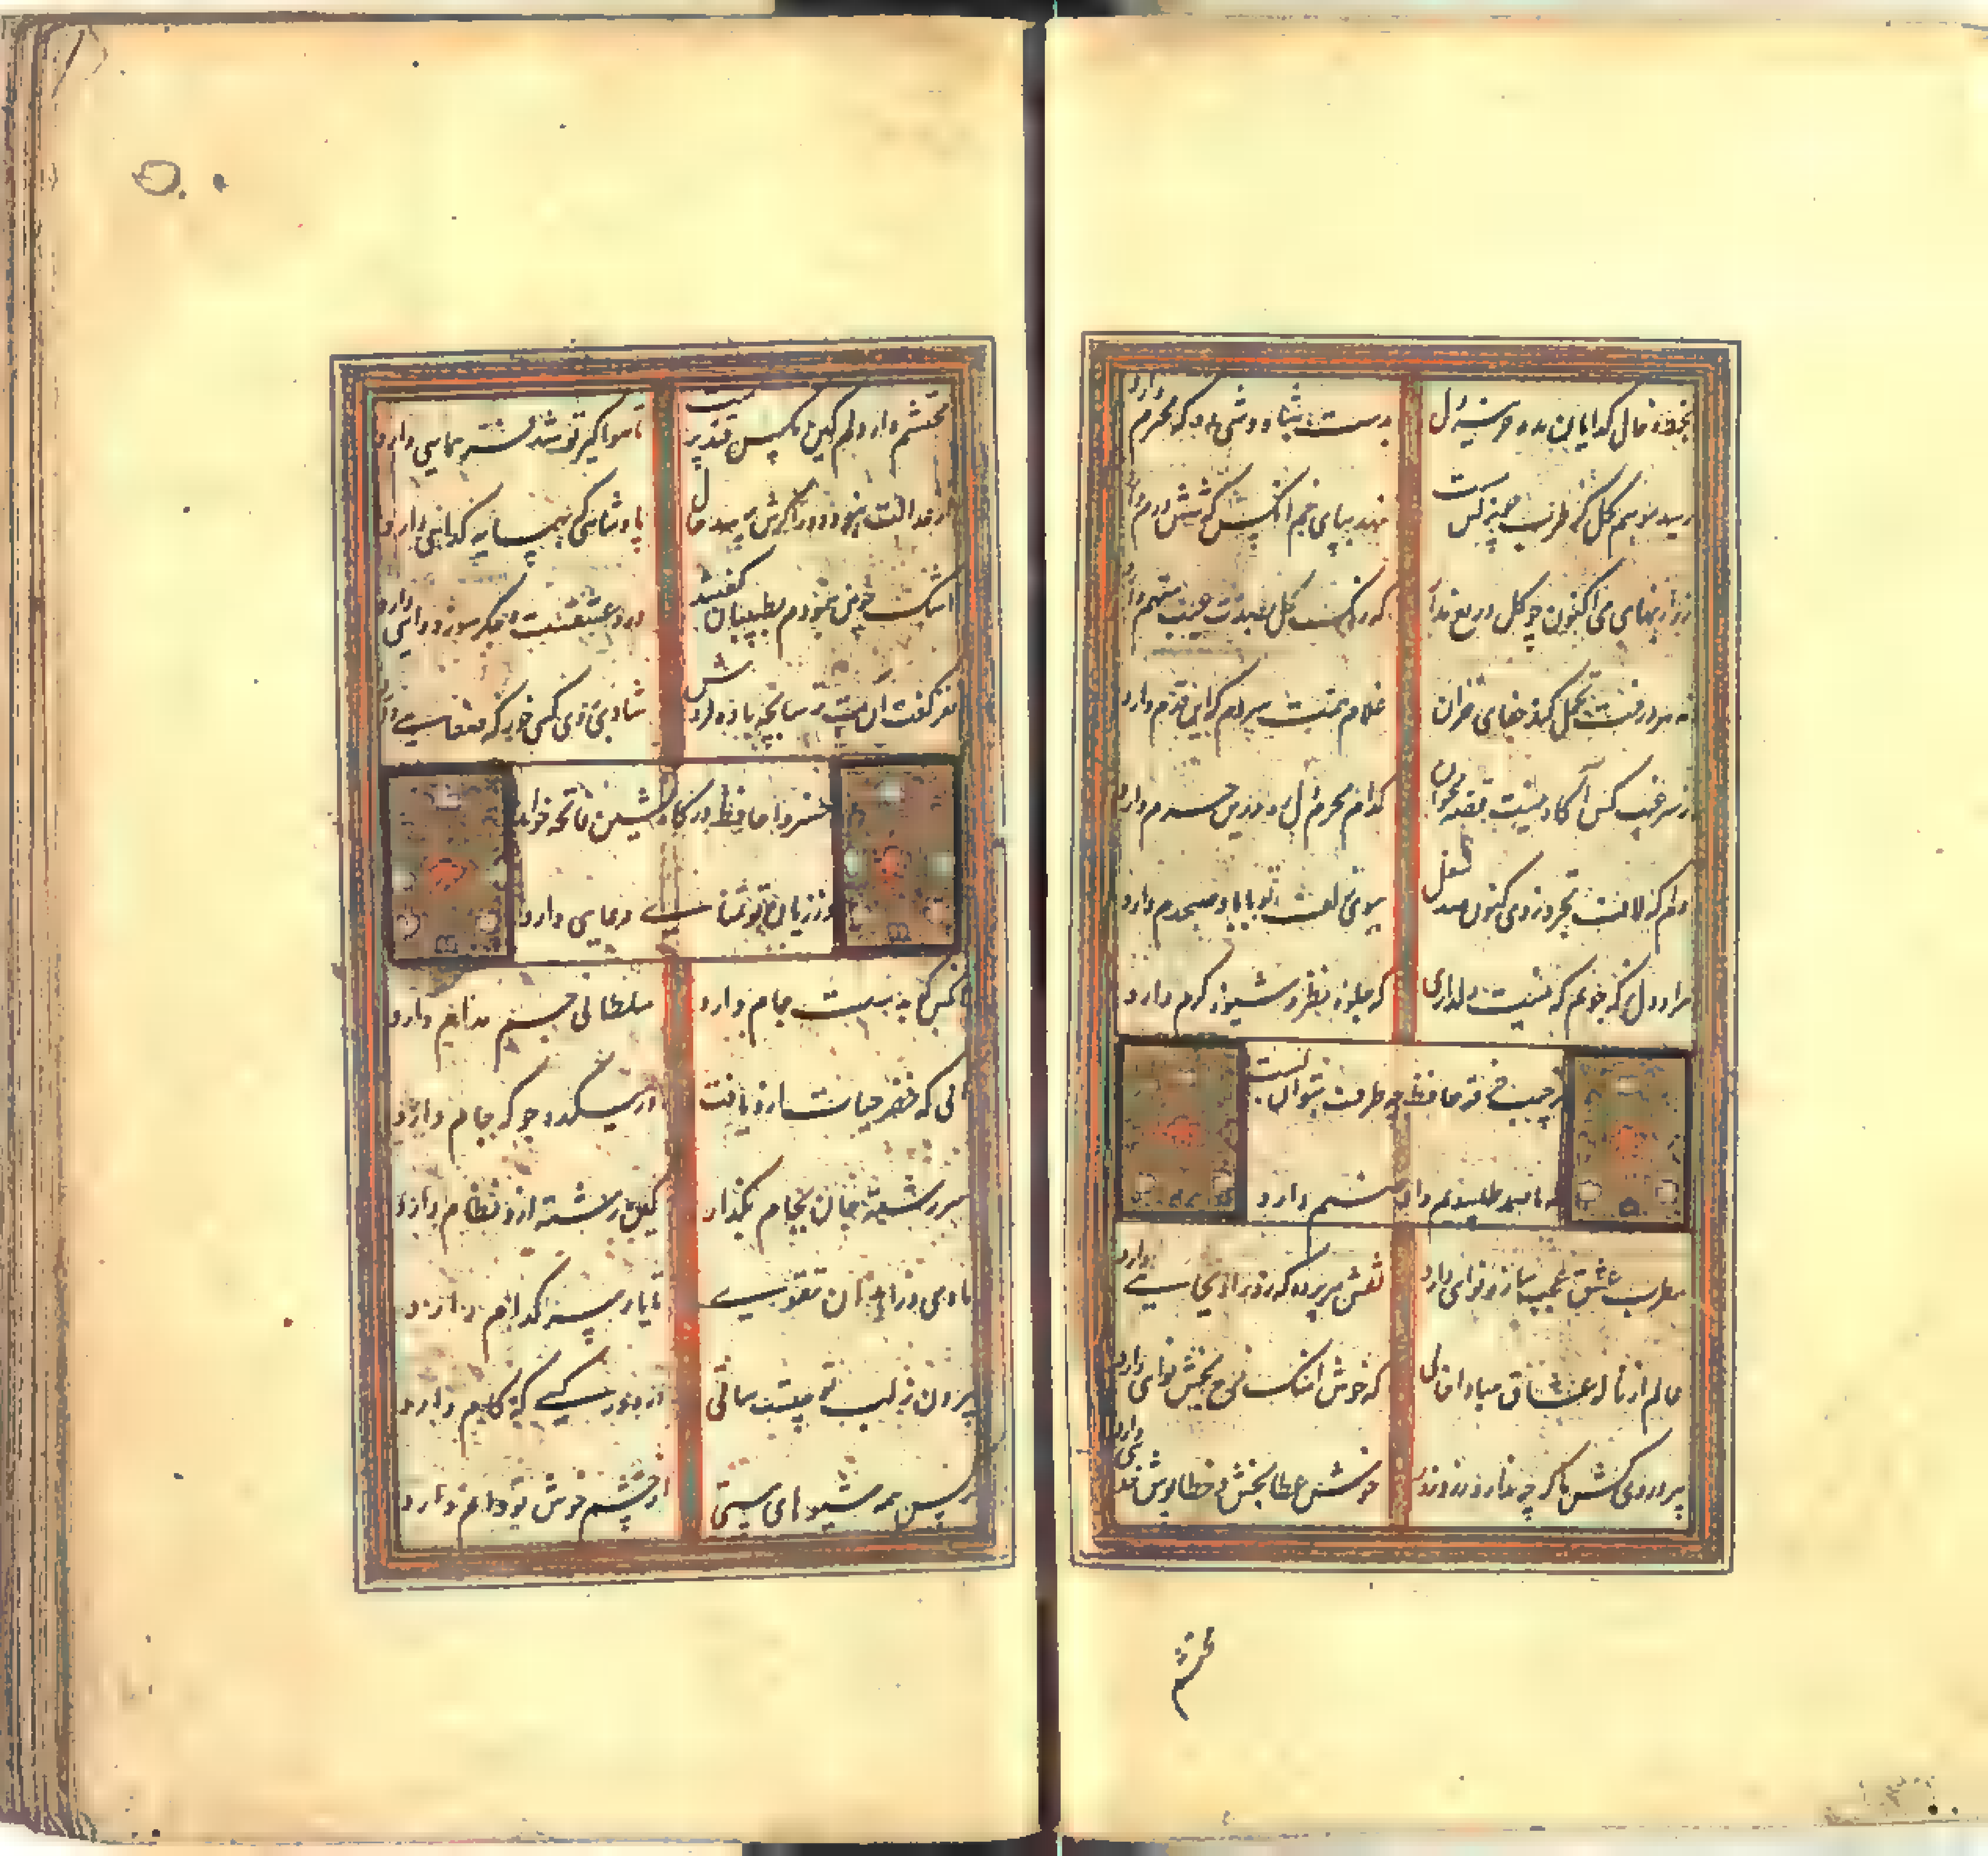 بخط و خال گدایان مده خزینه دل
بدست شاه وشی ده که محترم دارد
رسید موسم گل کز طرب چو نرگس مست
نهد بپای قدح آنکس که شش درم دارد
زر از بهای می اکنون چو گل دریغ مدار
که عقل کل بصدت عیب متهم دارد
نه هر درخت تحمل کند جفای خزان
غلام همت سروم که این قدم دارد
ز سر غیب کس آگاه نیست قصه مخوان
کدام محرم دل ره درین حرم دارد
دلم که لاف تجرد زدی کنون صد شغل
ببوی زلف تو با باد صبحدم دارد
مراد دل ز که جویم که نیست دلداری
که جلوه نظر و شیوه کرم دارد
ز جیب خرقه حافظ چه طرف بتوان بست
که ما صمد طلبیدیم و او صنم دارد
مطرب عشق عجب ساز و نوایی دارد
نقش هر پرده که زد راه بجایی دارد
عالم از ناله عشاق مبادا خالی
که خوش آهنگ و فرح بخش نوایی دارد
پیر دردی کش ما گرچه ندارد زر و زور
خوش عطابخش و خطاپوش خدایی دارد
محترم
محترم دار دلم کین مگس قند پرست
تا هواگیر تو شد فر همایی دارد
از عدالت نبود دور گرش پرسد حال
پادشاهی که بهمسایه گدایی دارد
اشک خونین بنمودم بطبیبان گفتند
درد عشقست و جگرسوز دوایی دارد
نغز گفت آن بت ترسابچه باده فروش
شادی روی کسی خور که صفایی دارد
خسروا حافظ درگاه نشین فاتحه خواند
وز زبان تو تمنای دعایی دارد
آنکس که بدست جام دارد
سلطانی جم مدام دارد
آبی که خضر حیات ازو یافت
در میکده جو که جام دارد
سررشته جان بجام بگذار
کین رشته ازو نظام دارد
ما و می و زاهدان و تقوی
تا یار سر کدام دارد
بیرون ز لب تو نیست ساقی
در دور کسی که کام دارد
نرگس همه شیوهای مستی
از چشم خوش تو وام دارد